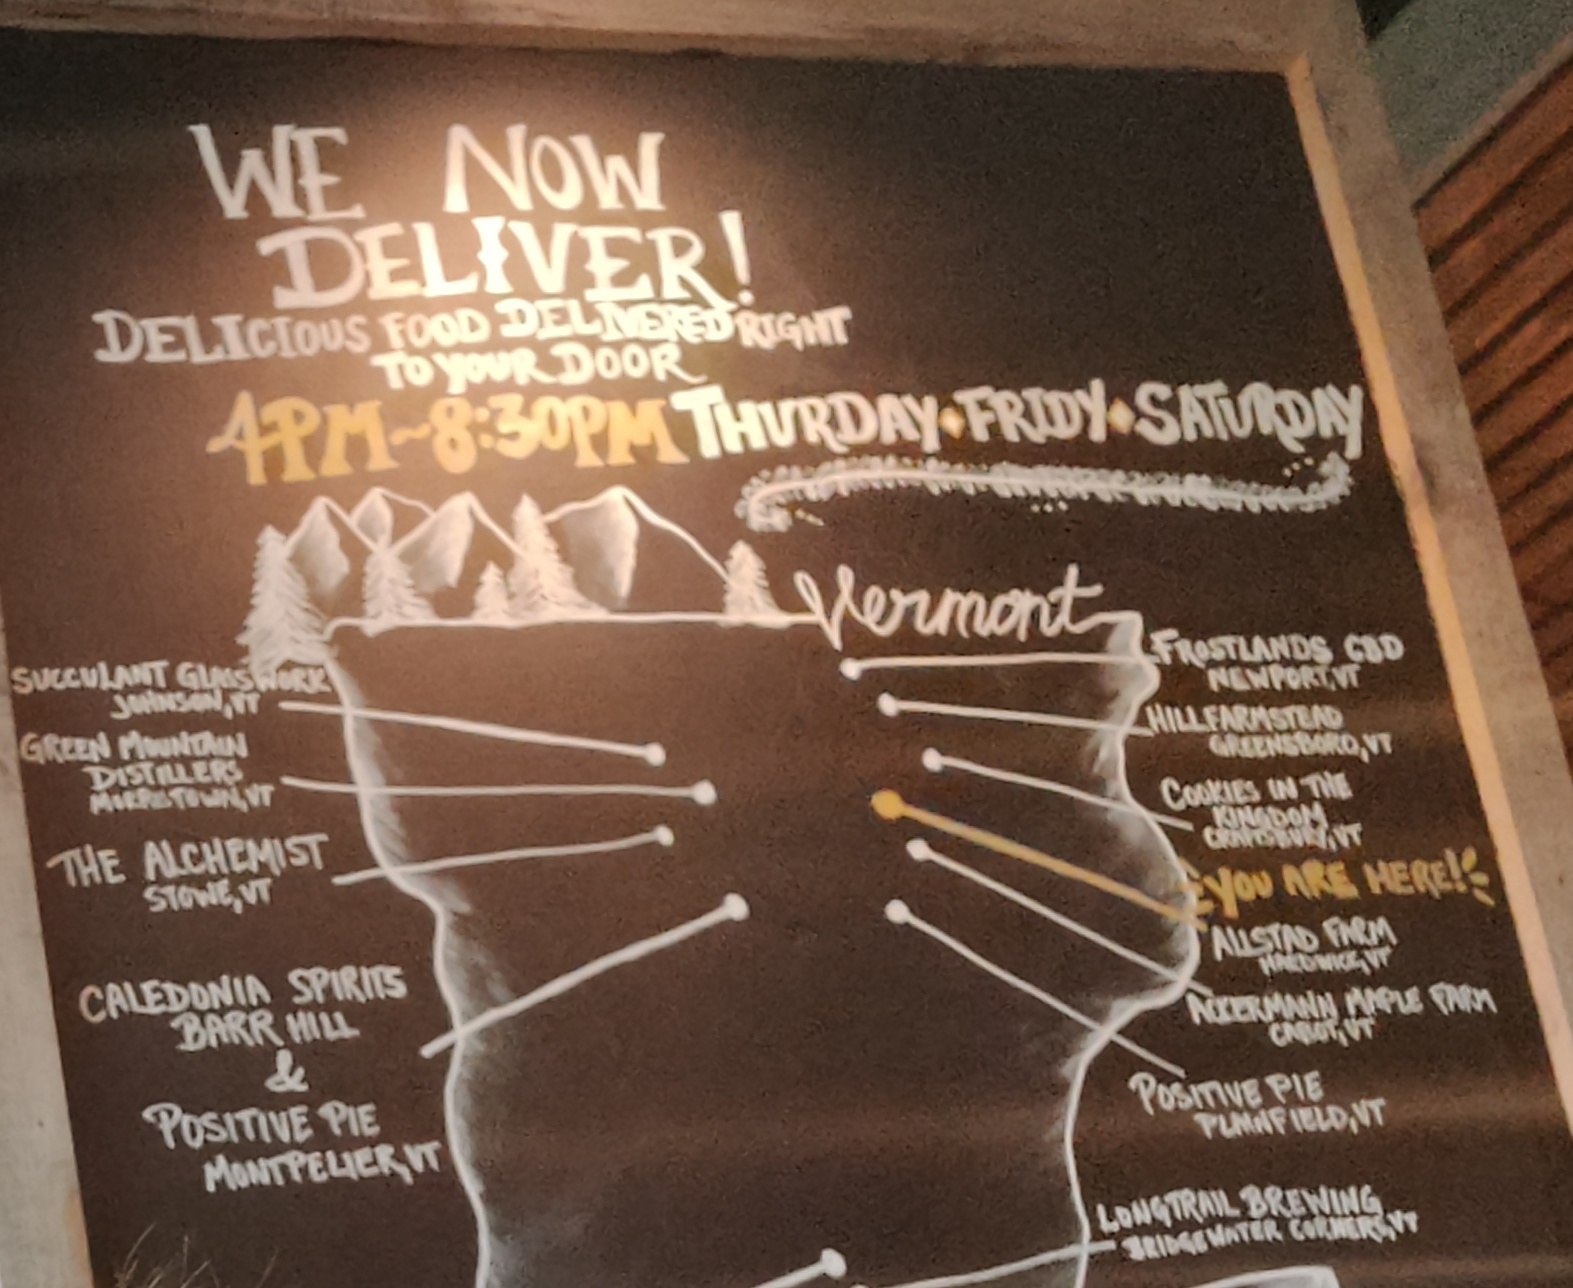 WE NOW
DELIVER!
DELICIOUS FOOD DELIVERED RIGHT
TO YOUR DOOR
4PM~8:30PM THURDAY • FRIDY • SATURDAY
Vermont
SUCCULANT GLASSWORK
JOHNSON, VT
GREEN MOUNTAIN
DISTILLERS
THE ALCHEMIST
STOWE, VT
CALEDONIA SPIRITS
BARR HILL
&
POSITIVE PIE
MONTPELIER, VT
FROSTLANDS CBD
NEWPORT, VT
HILLFARMSTEAD
GREENSBORO, VT
COOKIES IN THE
KINGDOM
YOU ARE HERE!
ALLSTAD FARM
HARDWICK, VT
ACKERMANN MAPLE FARM
CABOT, VT
POSITIVE PIE
PLAINFIELD, VT
LONGTRAIL BREWING
BRIDGEWATER CORNERS, VT